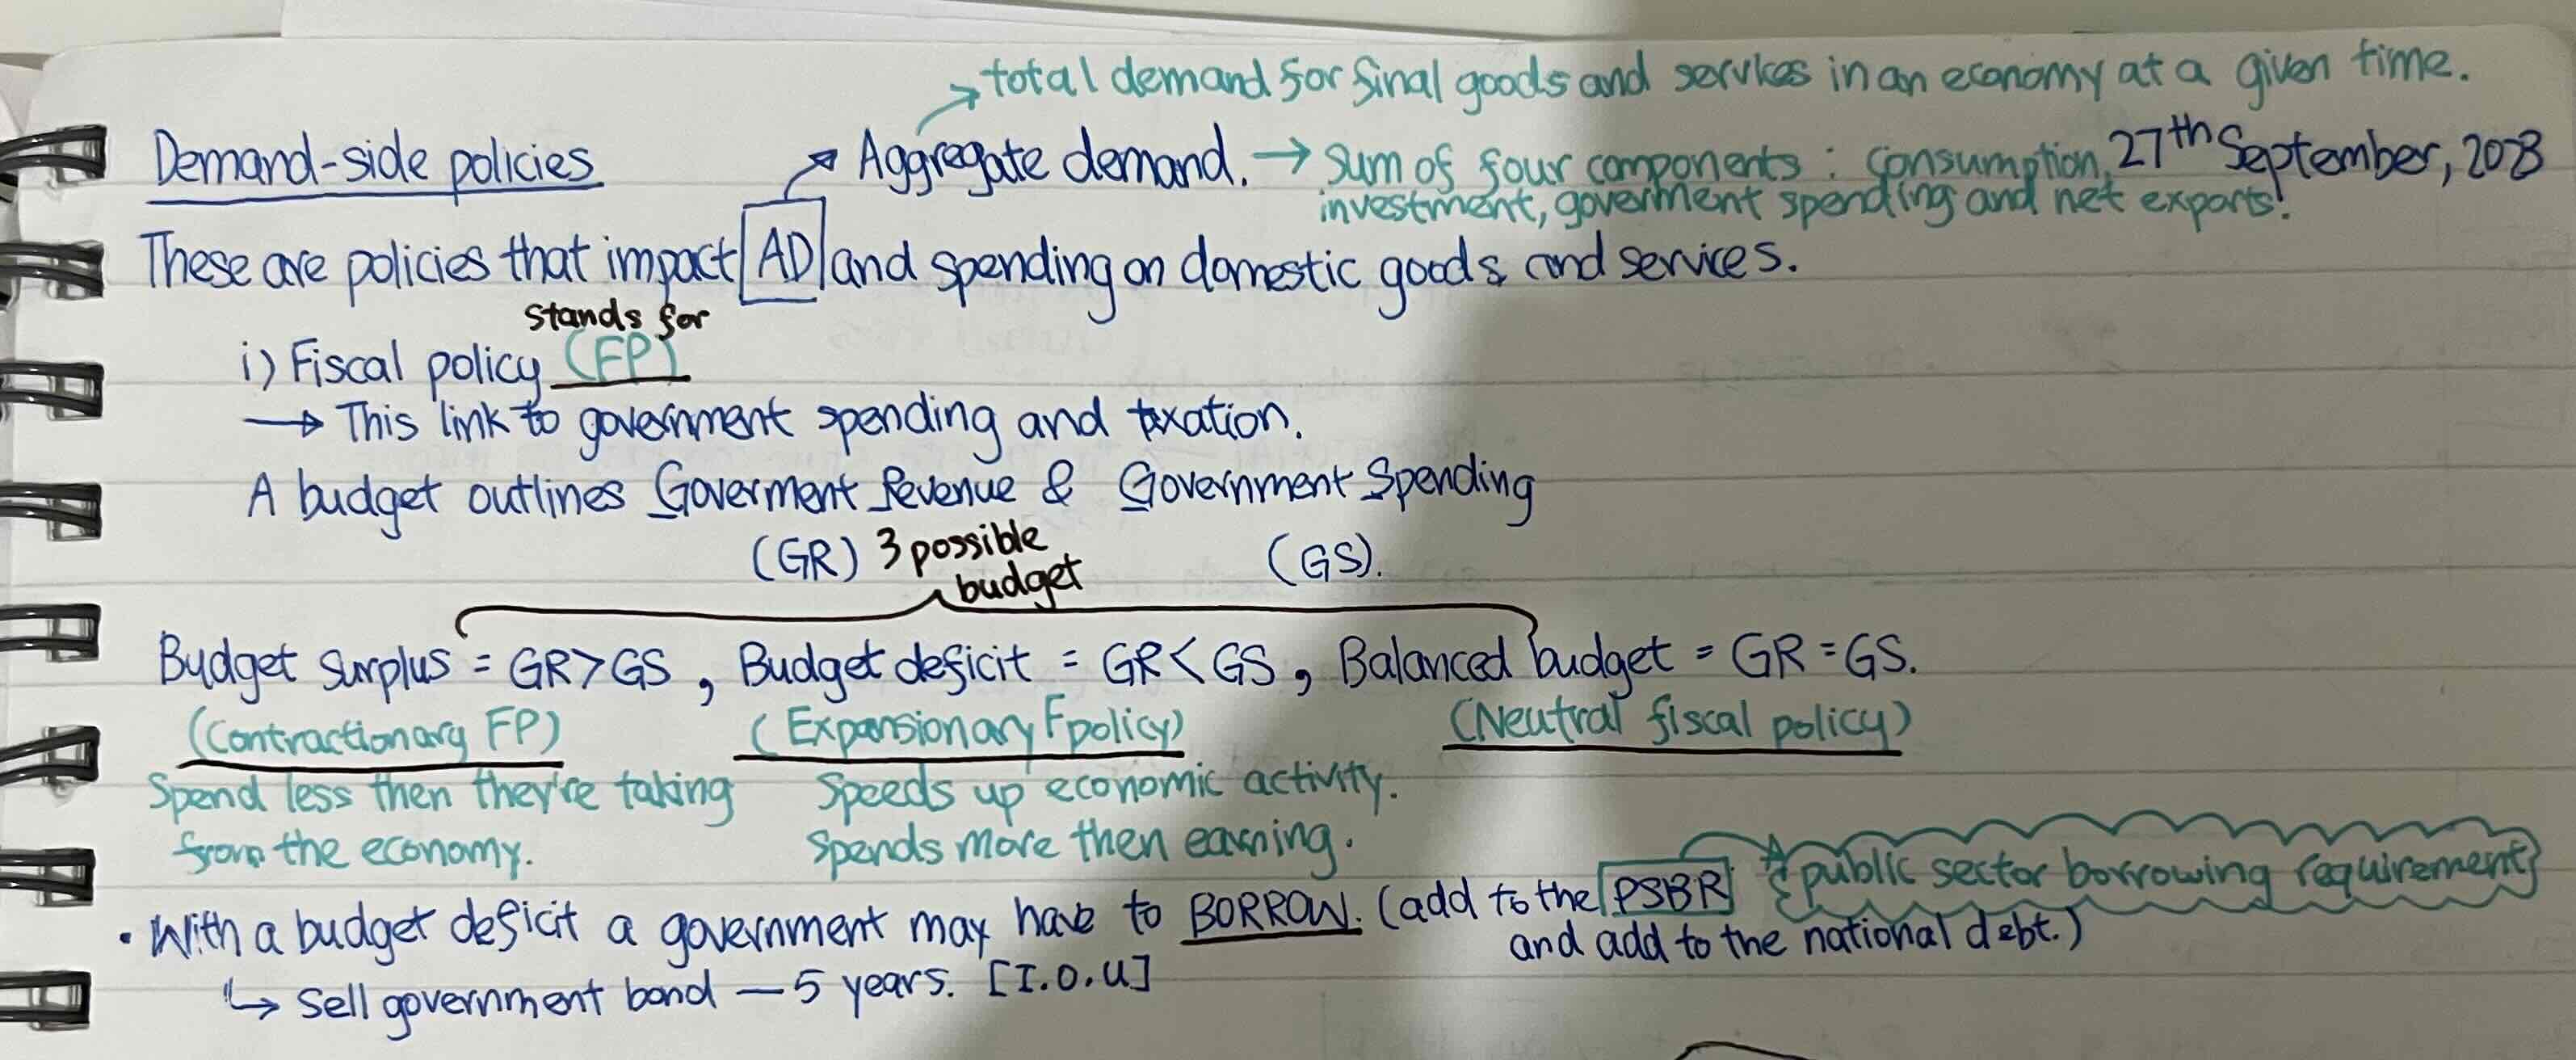 total demand for final goods and services in an economy at a given time.
Demand-side policies
Aggregate demand. → Sum of four components : Consumption,
27th September, 2023
investment, goverment spending and net exports.
These are policies that impact AD and spending on domestic goods and services.
stands for
i) Fiscal policy (FP)
→ This link to government spending and taxation.
A budget outlines Goverment Revenue & Government Spending
(GR) 3 possible (GS).
budget
Budget surplus = GR>GS , Budget deficit = GR<GS , Balanced budget = GR=GS.
(Contractionary FP) (Expansionary Fpolicy) (Neutral fiscal policy)
Spend less then they're taking Speeds up economic activity.
from the economy. Spends more then earning.
public sector borrowing requirement
• With a budget deficit a government may have to BORROW. (add to the PSBR
and add to the national debt.)
↳ Sell government bond — 5 years. [I.O.U]